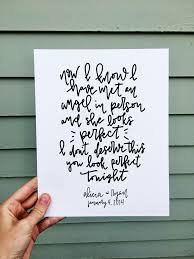 now I know I
have met an
angel in person
and she looks
perfect
I don't deserve this
you look perfect
tonight
alicia + Ryan
january 4, 2014